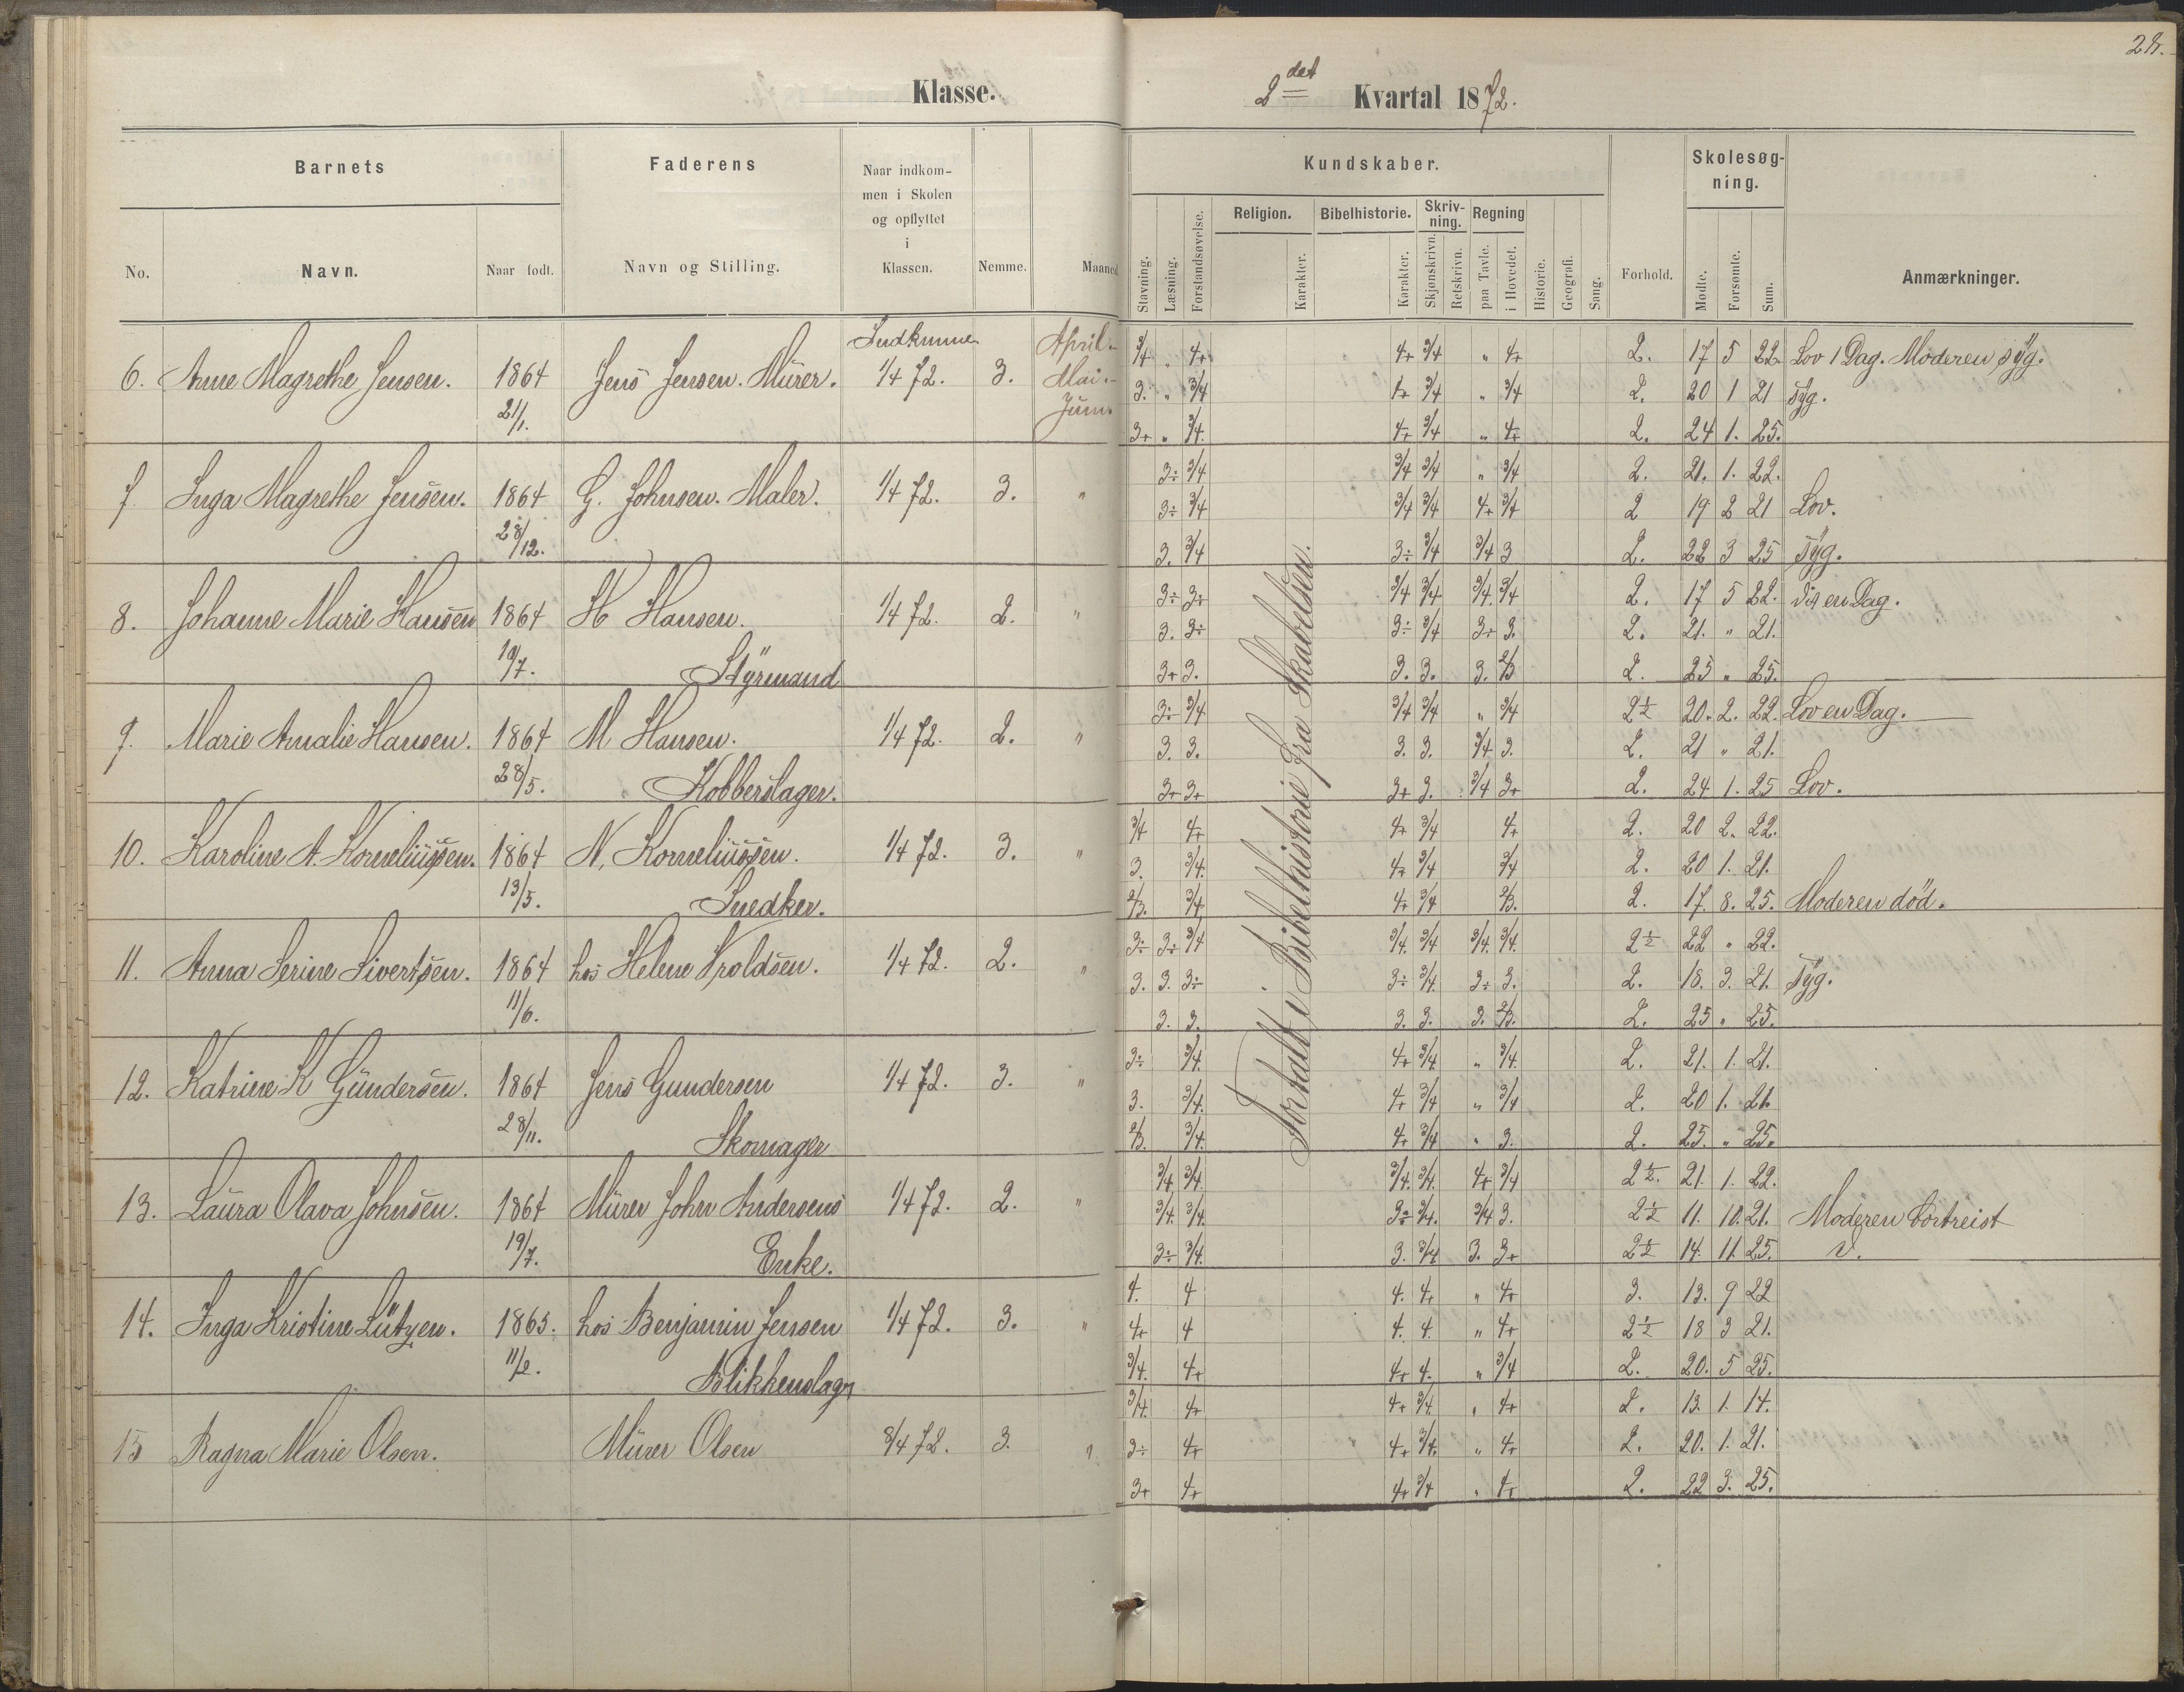 28.
Klasse.
2det Kvartal 1872.
Barnets
Faderens
Naar indkommen i Skolen og opflyttet i Klassen.
Kundskaber.
Skolesøgning.
No. Navn. Naar født. Navn og Stilling. Nemme. Maaned
Stavning. Læsning. Forstandsøvelse. Religion. Karakter. Bibelhistorie. Karakter. Skrivning. Skjønskrivn. Retskrivn. Regning paa Tavle. i Hovedet. Historie. Geografi. Sang. Forhold. Mødte. Forsømte. Sum. Anmærkninger.
Indkomne
6. Anne Magrethe Jensen. 1864 21/1. Jens Jensen. Murer. 1/4 72. 3.
April. 3/4 " 4+ 4+ 3/4 " 4+ 2. 17 5 22. Lov 1 Dag. Moderen syg.
Mai. 3. " 3/4 4+ 3/4 " 3/4 2. 20 1 21 Syg.
Juni. 3+ " 3/4. 4+ 3/4 " 4+ 2. 24 1. 25.
7 Inga Magrethe Jensen. 1864 28/12. G. Johnsen. Maler. 1/4 72. 3. "
3÷ 3/4 3/4 3/4 " 3/4 2. 21. 1. 22.
3÷ 3/4 3/4 3/4 4+ 3/4 2 19 2 21 Lov.
3. 3/4 3÷ 3/4 3/4 3 2. 22 3 25 Syg.
8. Johanne Marie Hansen 1864 19/7. H Hansen. Styrmand 1/4 72. 2. "
3÷ 3÷ 3/4 3/4 3/4. 3/4 2. 17 5 22. en Dag.
3. 3÷ 3÷ 3/4 3+ 3. 2. 21. " 21.
3+ 3. 3. 3. 3. 2/3 2. 25 " 25.
9. Marie Amalie Hansen. 1864 28/5. M Hansen. Kobberslager. 1/4 72. 2. "
3÷ 3/4 3/4 3/4 " 3/4 2½ 20. 2. 22. Lov en Dag.
3. 3. 3. 3. 3/4 3. 2. 21 " 21.
3+ 3+ 3+ 3. 3/4 3+ 2. 24 1. 25 Lov.
10. Karoline A. Korneliussen. 1864 13/5. N. Korneliussen. Snedker. 1/4 72. 3. "
3/4 4+ 4+ 3/4 4+ 2. 20 2. 22.
3. 3/4. 4+ 3/4 3/4 2. 20 1. 21.
2/3. 3/4 4+ 3/4 2/3. 2. 17. 8. 25. Moderen død.
11. Anna Serine Sivertsen. 1864 11/6. hos Helene Troldsen. 1/4 72. 2. "
3÷ 3÷ 3/4 3/4. 3/4 3/4. 3/4. 2½ 22 " 22.
3. 3. 3÷ 3÷ 3/4. 3÷ 3. 2. 18. 3. 21. Syg.
3. 3. 3. 3. 3. 2/3. 2. 25 " 25.
12. Katrine K Gundersen. 1864 28/11. Jens Gundersen Skomager 1/4 72. 3. "
3÷ 3/4. 4+ 3/4 " 3/4. 2. 21. 1. 21.
3. 3/4. 4+ 3/4 " 3/4 2. 20 1. 21.
2/3. 3/4. 4+ 3/4 " 3. 2. 25. " 25.
13. Laura Olava Johnsen. 1864 19/7. Murer John Andersens Enke. 1/4 72. 2. "
3/4 3/4. 3/4. 3/4. 4+ 3/4 2½. 21. 1. 22.
3/4. 3/4. 3÷ 3/4. 3/4 3. 2½ 11. 10. 21. Moderen bortreist
3÷ 3/4. 3. 3/4 3. 3+ 2½ 14. 11. 25.
14. Inga Kristine Lützen. 1865. 11/2. hos Benjamin Jensen Blikkenslager 1/4 72. 3. "
4. 4 4. 4. " 4+ 3. 13. 9 22
4+ 4 4. 4. " 4+ 2½ 18 3 21.
3/4. 4+ 4+ 4. " 3/4 2. 20. 5 25.
15 Ragna Marie Olsen. Murer Olsen 8/4 72. 3. "
3/4. 4+ 4+ 3/4. " 4+ 2. 13. 1. 14.
3÷ 4+ 4+ 3/4. " 4+ 2. 20. 1. 21.
3+ 4+ 4+ 3/4 " 4+ 2. 22 3. 25.
Fortalt i Bibelhistorie fra Skabelsen.